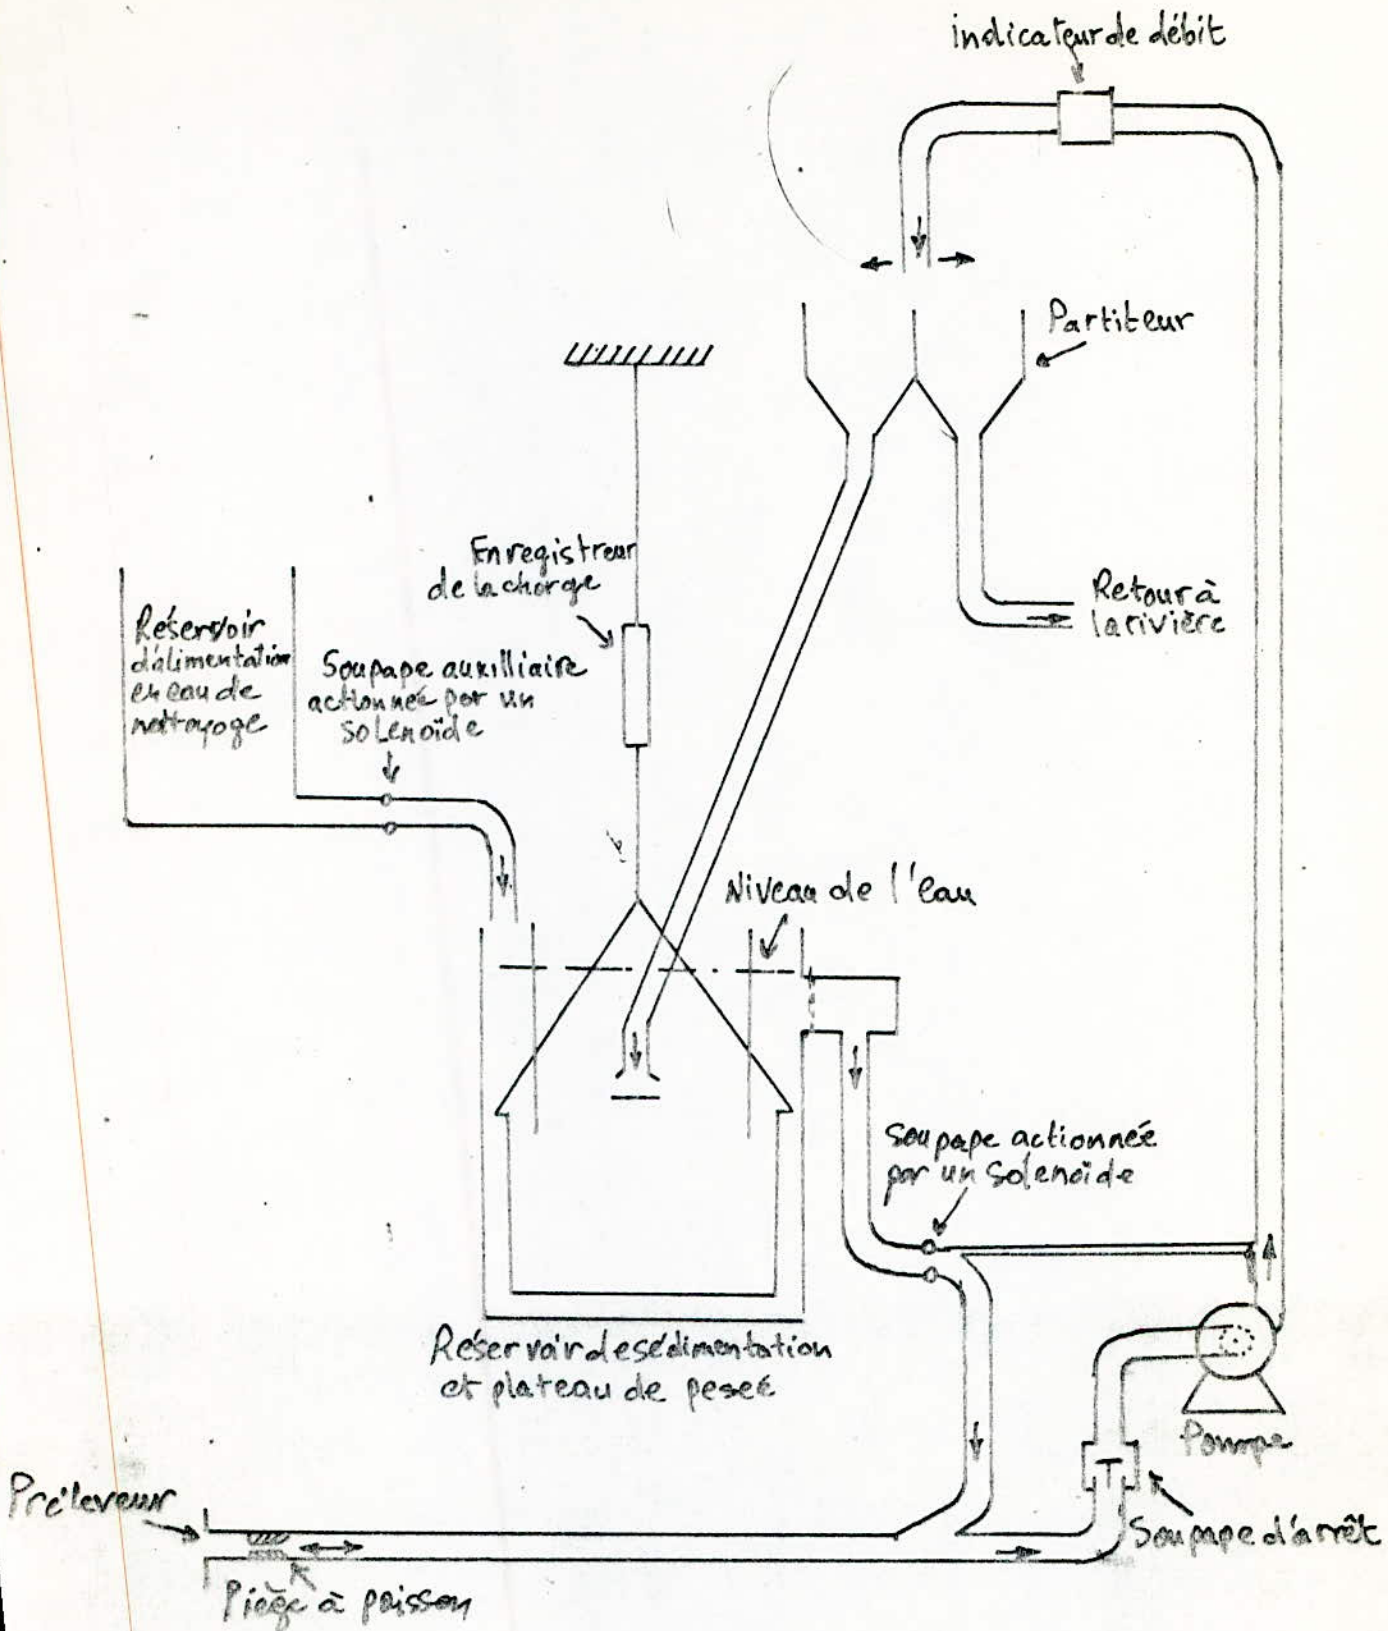 indicateur de débit
Partiteur
Enregistreur
de la charge
Retour à
la rivière
Réservoir
d'alimentation
en eau de
nettoyage
Soupape auxilliaire
actionnée par un
solenoïde
Niveau de l'eau
Soupape actionnée
par un solenoïde
Réservoir de sédimentation
et plateau de peseé
Pompe
Préleveur
Soupape d'arrêt
Piège à poisson